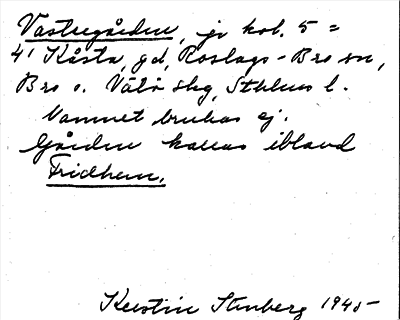 Västregården, jr kol. 5 =
4¹ Kårsta, gd, Roslags-Bro sn,
Bro o. Vätö skg, Sthlms l.
Namnet brukas ej.
Gården kallas ibland
Fridhem.
Kerstin Stenberg 1945